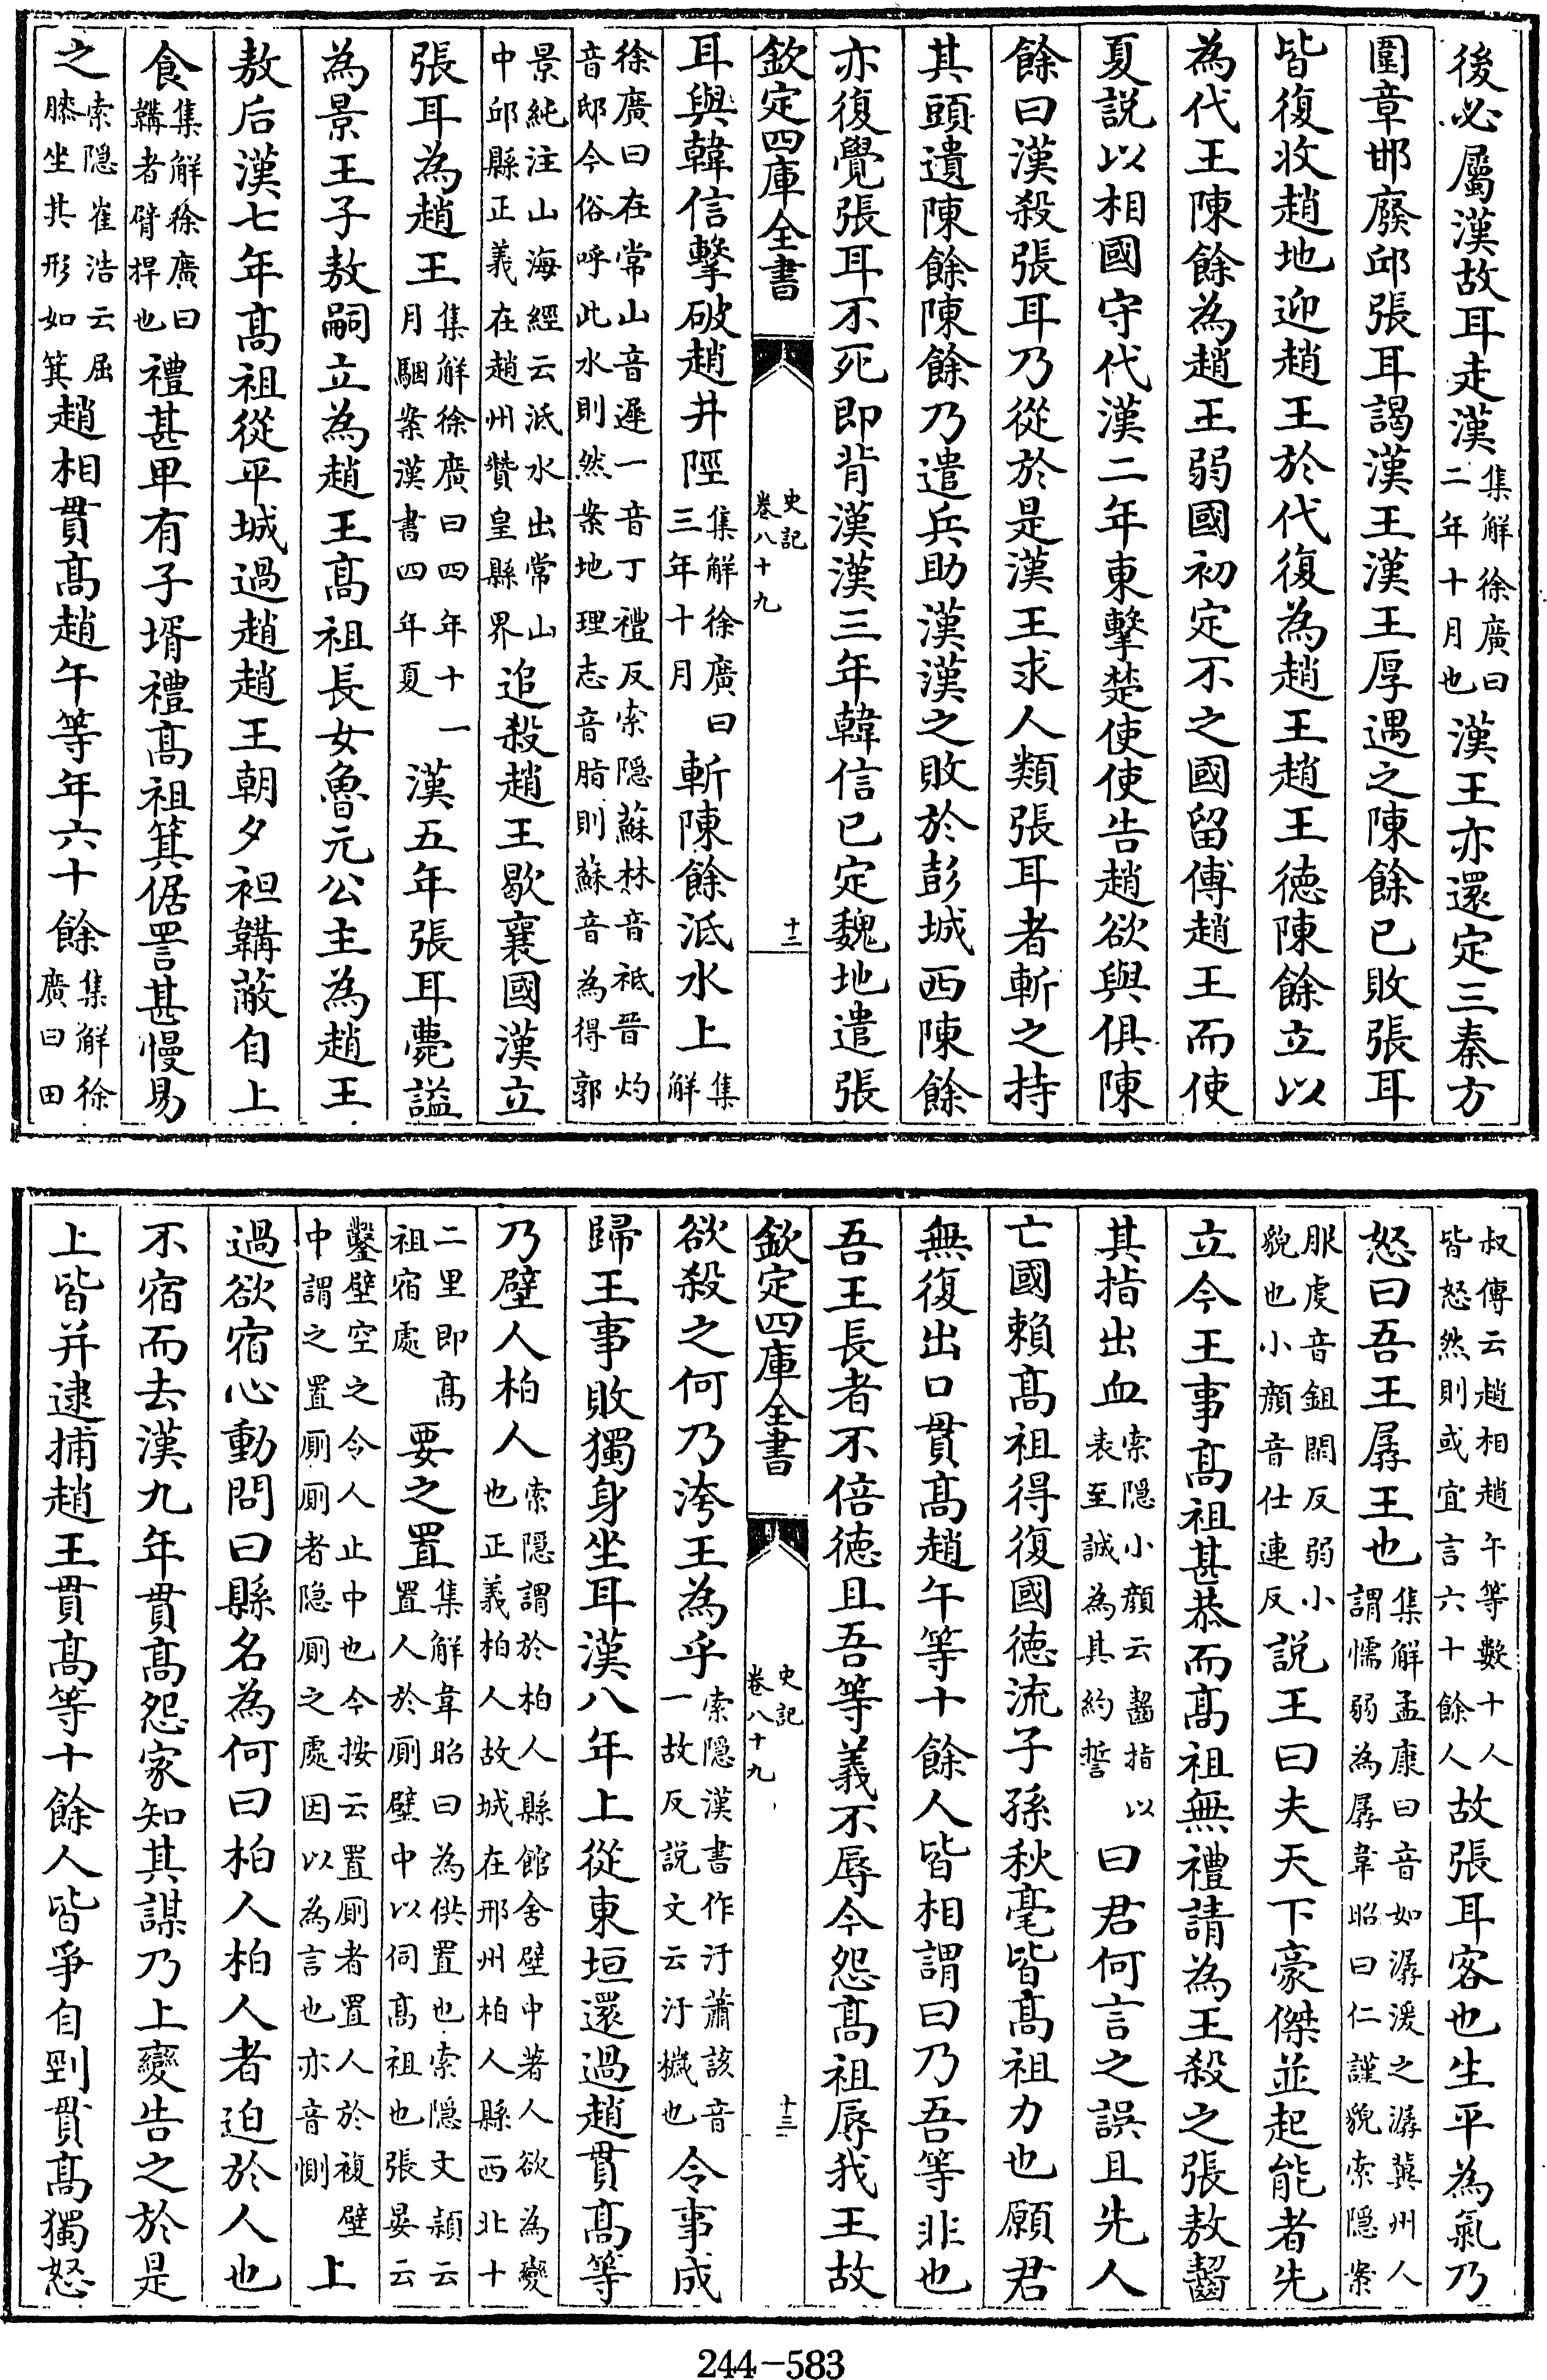 後必屬漢故耳走漢集解徐廣曰二年十月也漢王亦還定三秦方
圍章邯廢邱張耳謁漢王漢王厚遇之陳餘已敗張耳
皆復收趙地迎趙王於代復為趙王趙王徳陳餘立以
為代王陳餘為趙王弱國初定不之國留傅趙王而使
夏説以相國守代漢二年東擊楚使使告趙欲與俱陳
餘曰漢殺張耳乃從於是漢王求人類張耳者斬之持
其頭遺陳餘陳餘乃遣兵助漢漢之敗於彭城西陳餘
亦復覺張耳不死即背漢漢三年韓信已定魏地遣張
欽定四庫全書 史記卷八十九 十二
耳與韓信擊破趙井陘集解徐廣曰三年十月斬陳餘泜水上集解
徐廣曰在常山音遲一音丁禮反索隠蘇林音祗晉灼音邸今俗呼此水則然案地理志音脂則蘇音為得郭
景純注山海經云泜水出常山中邱縣正義在趙州贊皇縣界追殺趙王歇襄國漢立
張耳為趙王集解徐廣曰四年十一月駰案漢書四年夏漢五年張耳薨謚
為景王子敖嗣立為趙王高祖長女魯元公主為趙王
敖后漢七年高祖從平城過趙趙王朝夕袒韝蔽自上
食集解徐廣曰韝者臂捍也禮甚卑有子壻禮高祖箕倨詈甚慢易
之索隠崔浩云屈膝坐其形如箕趙相貫高趙午等年六十餘集解徐廣曰田
叔傳云趙相趙午等數十人皆怒然則或宜言六十餘人故張耳客也生平為氣乃
怒曰吾王孱王也集解孟康曰音如潺湲之潺冀州人謂懦弱為孱韋昭曰仁謹貌索隠案
服虔音鉏閑反弱小貌也小顔音仕連反説王曰夫天下豪傑並起能者先
立今王事高祖甚恭而高祖無禮請為王殺之張敖齧
其指出血索隠小顔云齧指以表至誠為其約誓曰君何言之誤且先人
亡國賴高祖得復國徳流子孫秋毫皆高祖力也願君
無復出口貫高趙午等十餘人皆相謂曰乃吾等非也
吾王長者不倍徳且吾等義不辱今怨高祖辱我王故
欽定四庫全書 史記卷八十九 十三
欲殺之何乃洿王為乎索隠漢書作汙蕭該音一故反説文云汙穢也令事成
歸王事敗獨身坐耳漢八年上從東垣還過趙貫高等
乃壁人柏人索隠謂於柏人縣館舍壁中著人欲為變也正義柏人故城在邢州柏人縣西北十
二里即高祖宿處要之置集解韋昭曰為供置也索隠文頴云置人於廁壁中以伺高祖也張晏云
鑿壁空之令人止中也今按云置廁者置人於複壁中謂之置廁廁者隠廁之處因以為言也亦音惻上
過欲宿心動問曰縣名為何曰柏人柏人者迫於人也
不宿而去漢九年貫高怨家知其謀乃上變告之於是
上皆并逮捕趙王貫高等十餘人皆爭自剄貫高獨怒
244-583